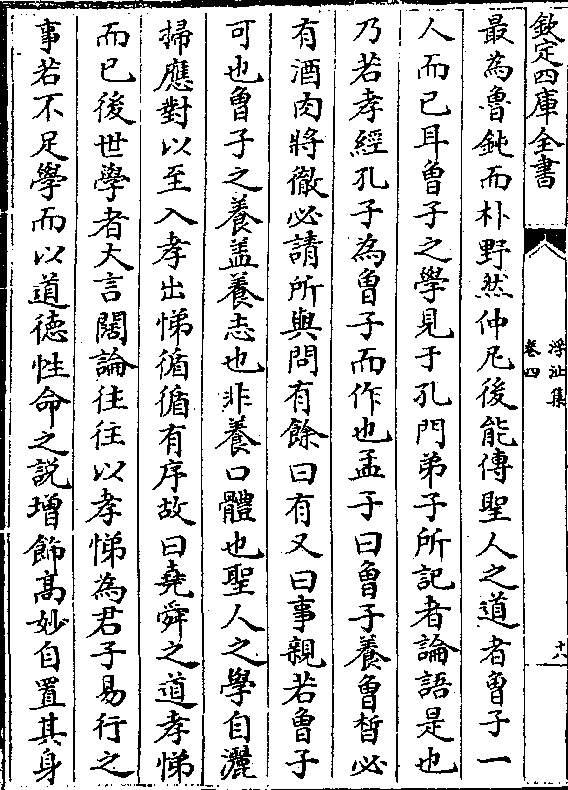 欽定四庫全書
浮沚集
卷四
十八
最為魯鈍而朴野然仲尼後能傳聖人之道者曾子一
人而已耳曾子之學見于孔門弟子所記者論語是也
乃若孝經孔子為曾子而作也孟子曰曾子養曾晳必
有酒肉將徹必請所與問有餘曰有又曰事親若曾子
可也曾子之養盖養志也非養口體也聖人之學自灑
掃應對以至入孝出悌循循有序故曰堯舜之道孝悌
而已後世學者大言闊論往往以孝悌為君子易行之
事若不足學而以道德性命之説增飾髙妙自置其身